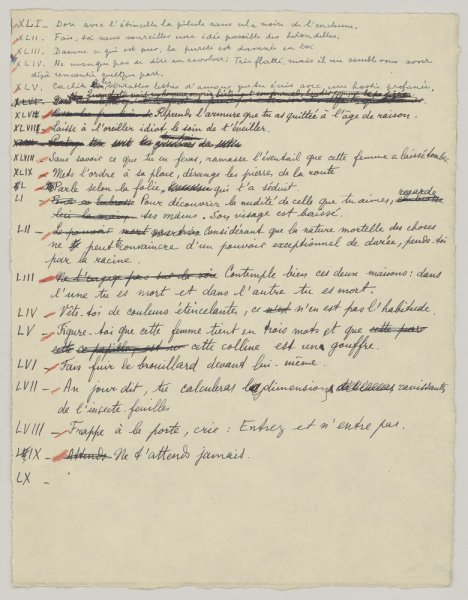 XLI - Dore avec l'étincelle la pilule sans cela noire de l'enclume.
XLII. Fais-toi sans sourciller une idée possible des hirondelles.
XLIII.
XLIV. Ne manque pas de dire au revolver: Très flatté, mais il me semble vous avoir
déjà rencontré quelque part.
XLV. Cachète les véritables lettres d'amour que tu écris avec une hostie profanée.
XLVI -
XLVII - Reprends l'armure que tu as quittée à l'âge de raison.
XLVIII - Laisse à l'oreiller idiot le soin de t'éveiller.
XLVIII - Sans savoir ce que tu en feras, ramasse l'éventail que cette femme a laissé tomber.
XLIX - Mets l'ordre à sa place, dérange les pierres de la route
L - Parle selon la folie qui t'a séduit.
LI - Pour découvrir la nudité de celle que tu aimes, regarde
ses mains. Son visage est baissé.
LII - Le pouvoir Considérant que la nature mortelle des choses
ne peut convaincre d'un pouvoir exceptionnel de durée, pends-toi
par la racine.
LIII - Ne t'engage pas sur la voie Contemple bien ces deux maisons: dans
l'une tu es mort et dans l'autre tu es mort.
LIV - Vêts-toi de couleurs étincelantes, ce n'est n'en est pas l'habitude.
LV - Figure-toi que cette femme tient en trois mots et que
cette colline est un gouffre.
LVI - Fais fuir le brouillard devant lui-même.
LVII - Au jour dit, tu calculeras la dimension ravissante
de l'insecte-feuilles
LVIII - Frappe à la porte, crie: Entrez et n'entre pas.
LIX - Attends Ne t'attends jamais.
LX -